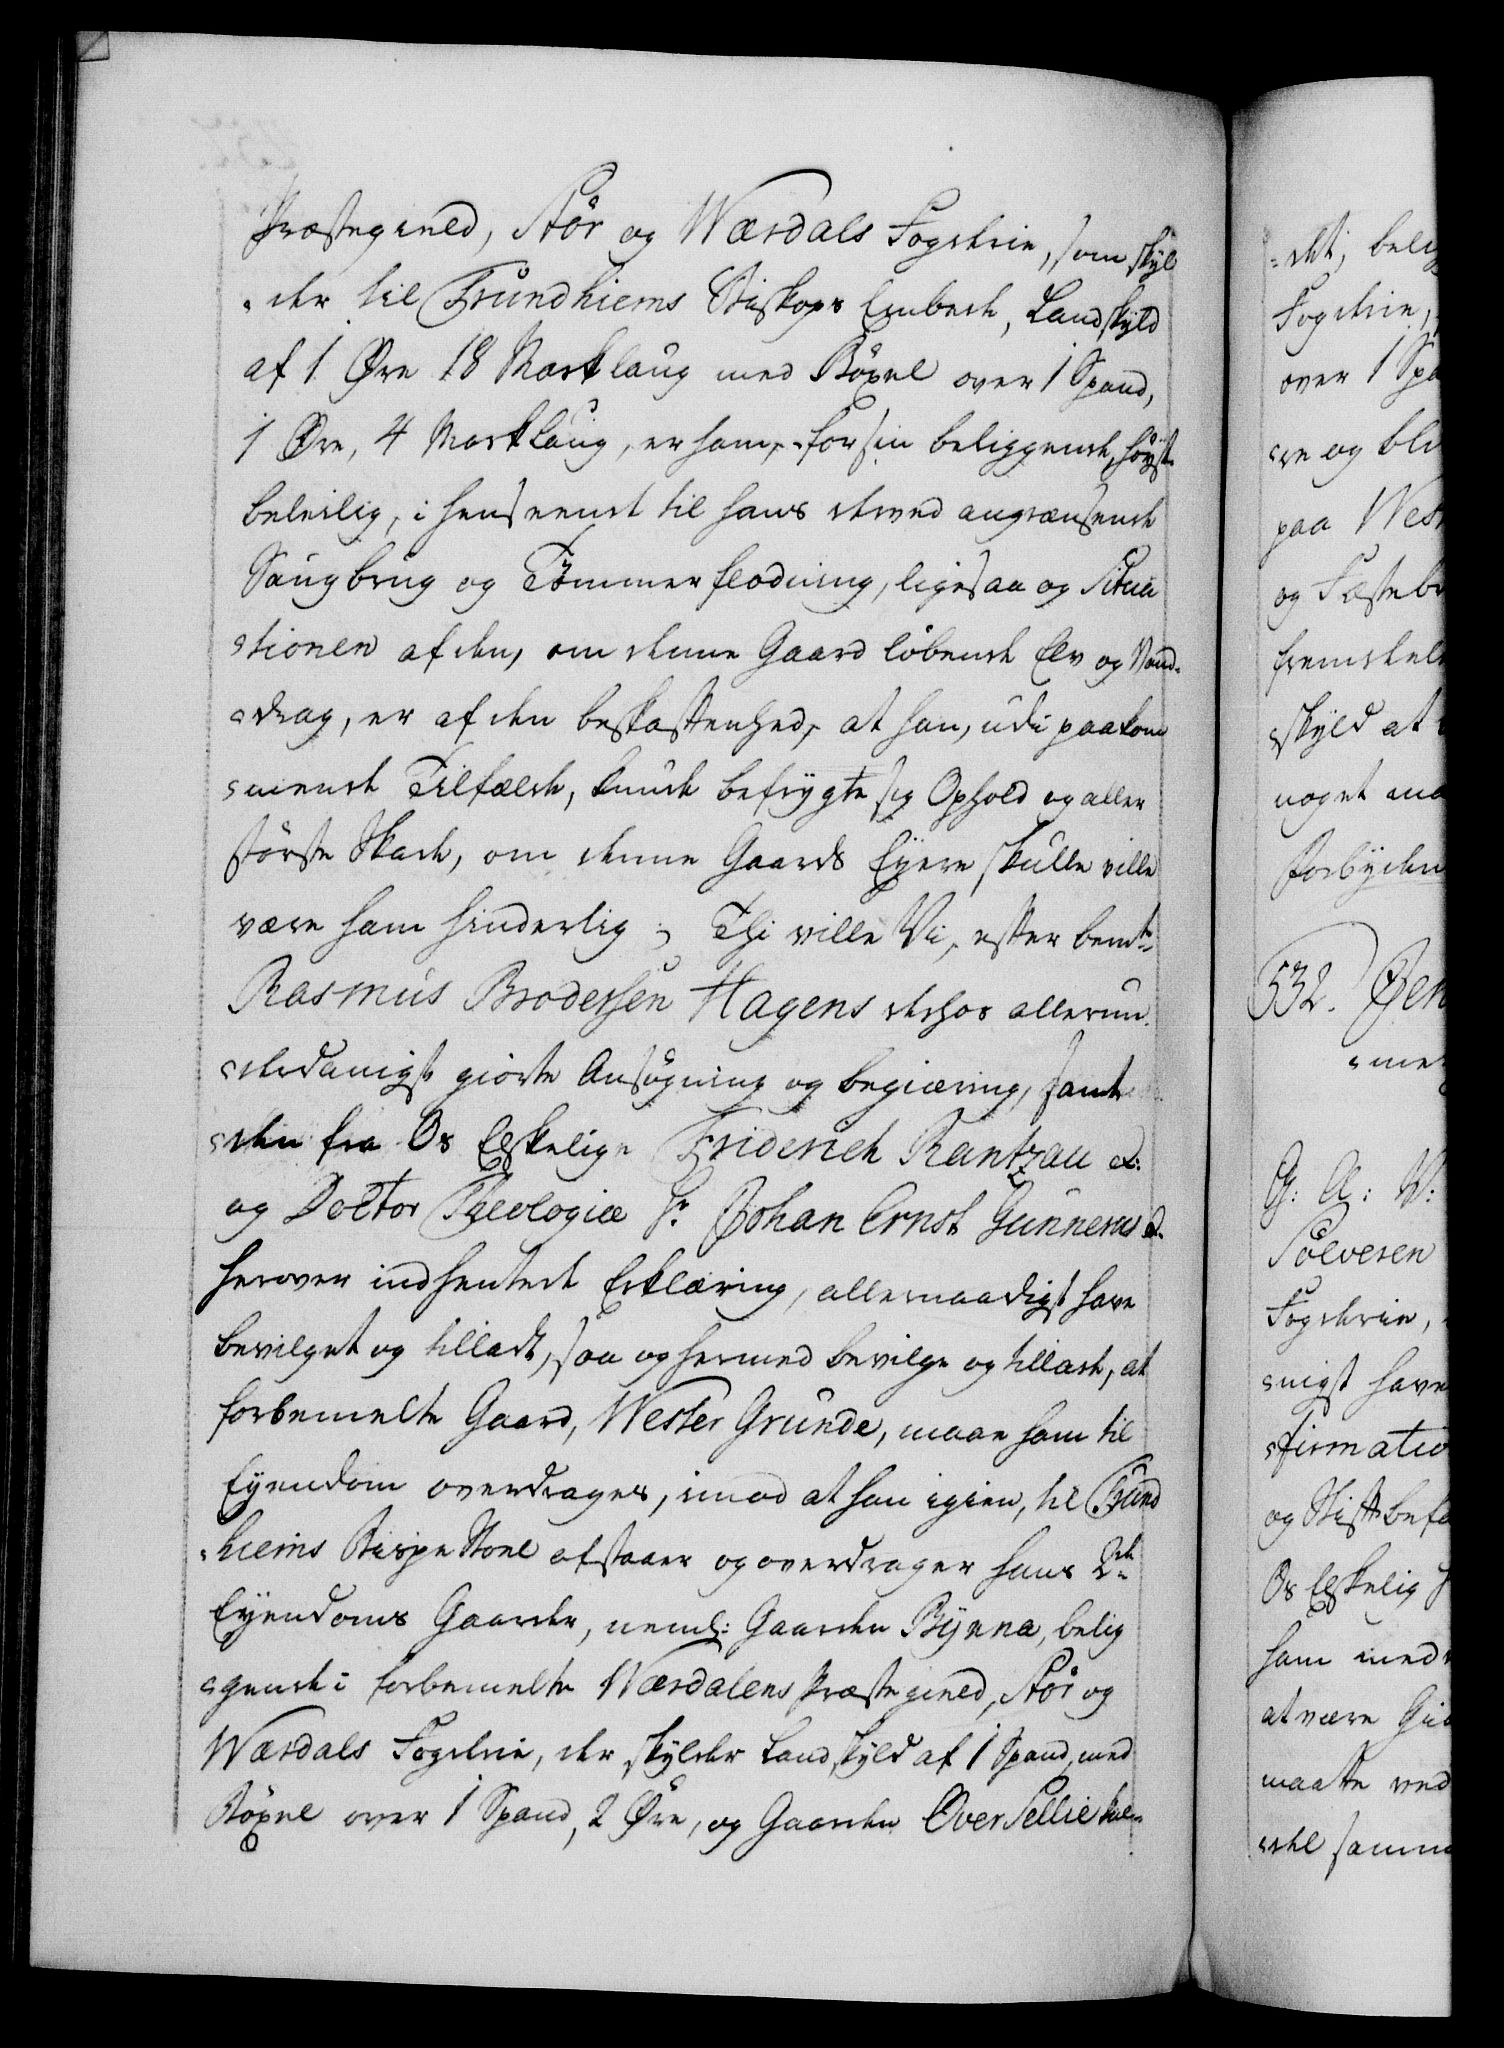 Præstegield, Stör og Wærdals Fogderie, som skyl
-der til Trundhiems Biskops Embede, Landskyld
af 1 Øre 18 Marklaug med Böxel over 1 Spand,
1 Øre, 4 Marklaug, er ham, for sin beliggende, höyst
beleilig, i henseende til hans derved angrænsende
Saugbrug og Tömmerflodning, ligesaa og Situa
-tionen af den, om denne Gaard löbende Elv og Vand-
-drag, er af den beskaffenhed, at han, udi paakom
-mende Tilfælde, kunde befrygte sig Ophold og aller
störste Skade, om denne Gaards Eyere skulle ville
være ham hinderlig; Thi ville Vi, efter bemte
Rasmus Brodersen Hagens derhos allerun
-derdanigst giorte Ansögning og begiæring, samt
-den fra Os Elskelige Friderich Rantzau &:
og Doctor Theologiæ Hr. Johan Ernst Gunnerus &.
herover indhentede Erklæring, allernaadigst have
bevilget og tilladt, saa og hermed bevilge og tillade, at
forbemelte Gaard, Wester Grunde, maae ham til
Eyendom overdrages, imod at han igien, til Trund
-hiems Bispe Stoel afstaaer og overdrager hans 2de
Eyendoms Gaarder, neml: Gaarden Bynna, belig
-gende i forbemelte Wærdalens Præstegield, Stör og
Wærdals Fogderie, der skylder Landskyld af 1 Spand, med
Böxel over 1 Spand, 2 Øre, og Gaarden Over Sellie
-det, belig
Fogderie,
over 1 Spa
-re og bli
paa West
og Fæstebr
fremdeles
-skyld at
noget ma
Forbyden
532. Jen
G: A: V:
Sölvesen
Fogderie,
-nigst have
-firmatio
og Stiftbefa
Os Elskelig H
ham med
at være Gi
maatte ved
-del samm